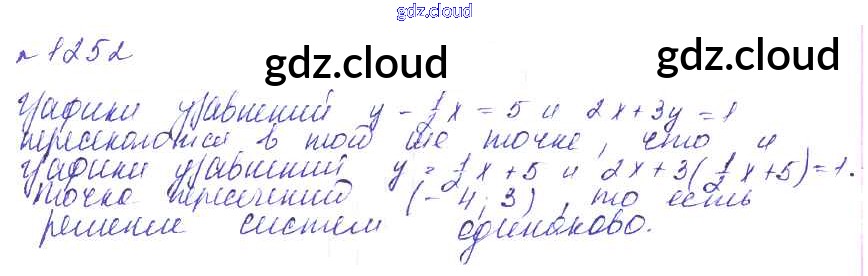 gdz.cloud
№1252
gdz.cloud
gdz.cloud
графики уравнений y - 1/2 x = 5 и 2x + 3y = 1
пересекаются в той же точке, что и
графики уравнений y = 1/2 x + 5 и 2x + 3(1/2 x + 5) = 1.
точка пересечений (-4; 3), то есть
решение систем одинаково.